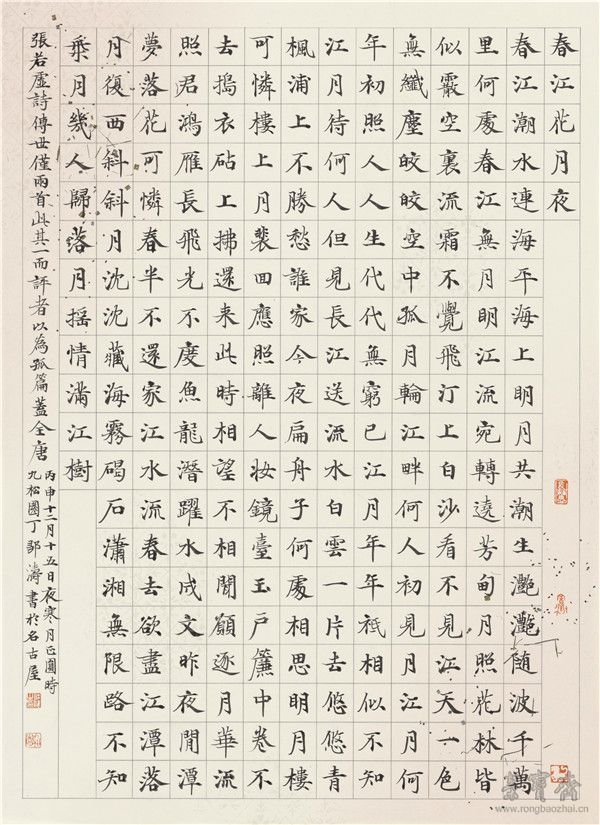 春江花月夜
春江潮水連海平海上明月共潮生灩灩随波千萬
里何處春江無月明江流宛轉遶芳甸月照花林皆
似霰空裏流霜不覺飛汀上白沙看不見江天一色
無纖塵皎皎空中孤月輪江畔何人初見月江月何
年初照人人生代代無窮已江月年年秖相似不知
江月待何人但見長江送流水白雲一片去悠悠青
楓浦上不勝愁誰家今夜扁舟子何處相思明月樓
可憐樓上月裴回應照離人妝鏡臺玉戶簾中卷不
去搗衣砧上拂還来此時相望不相聞願逐月華流
照君鴻雁長飛光不度魚龍潛躍水成文昨夜閒潭
夢落花可憐春半不還家江水流春去欲盡江潭落
月復西斜斜月沈沈藏海霧碣石瀟湘無限路不知
乘月幾人歸落月揺情滿江樹
張若虛詩傳世僅兩首此其一而評者以為孤篇蓋全唐
丙申十二月十五日夜寒月正圓時
九松園丁鄒濤書於名古屋
榮寶齋
www.rongbaozhai.cn